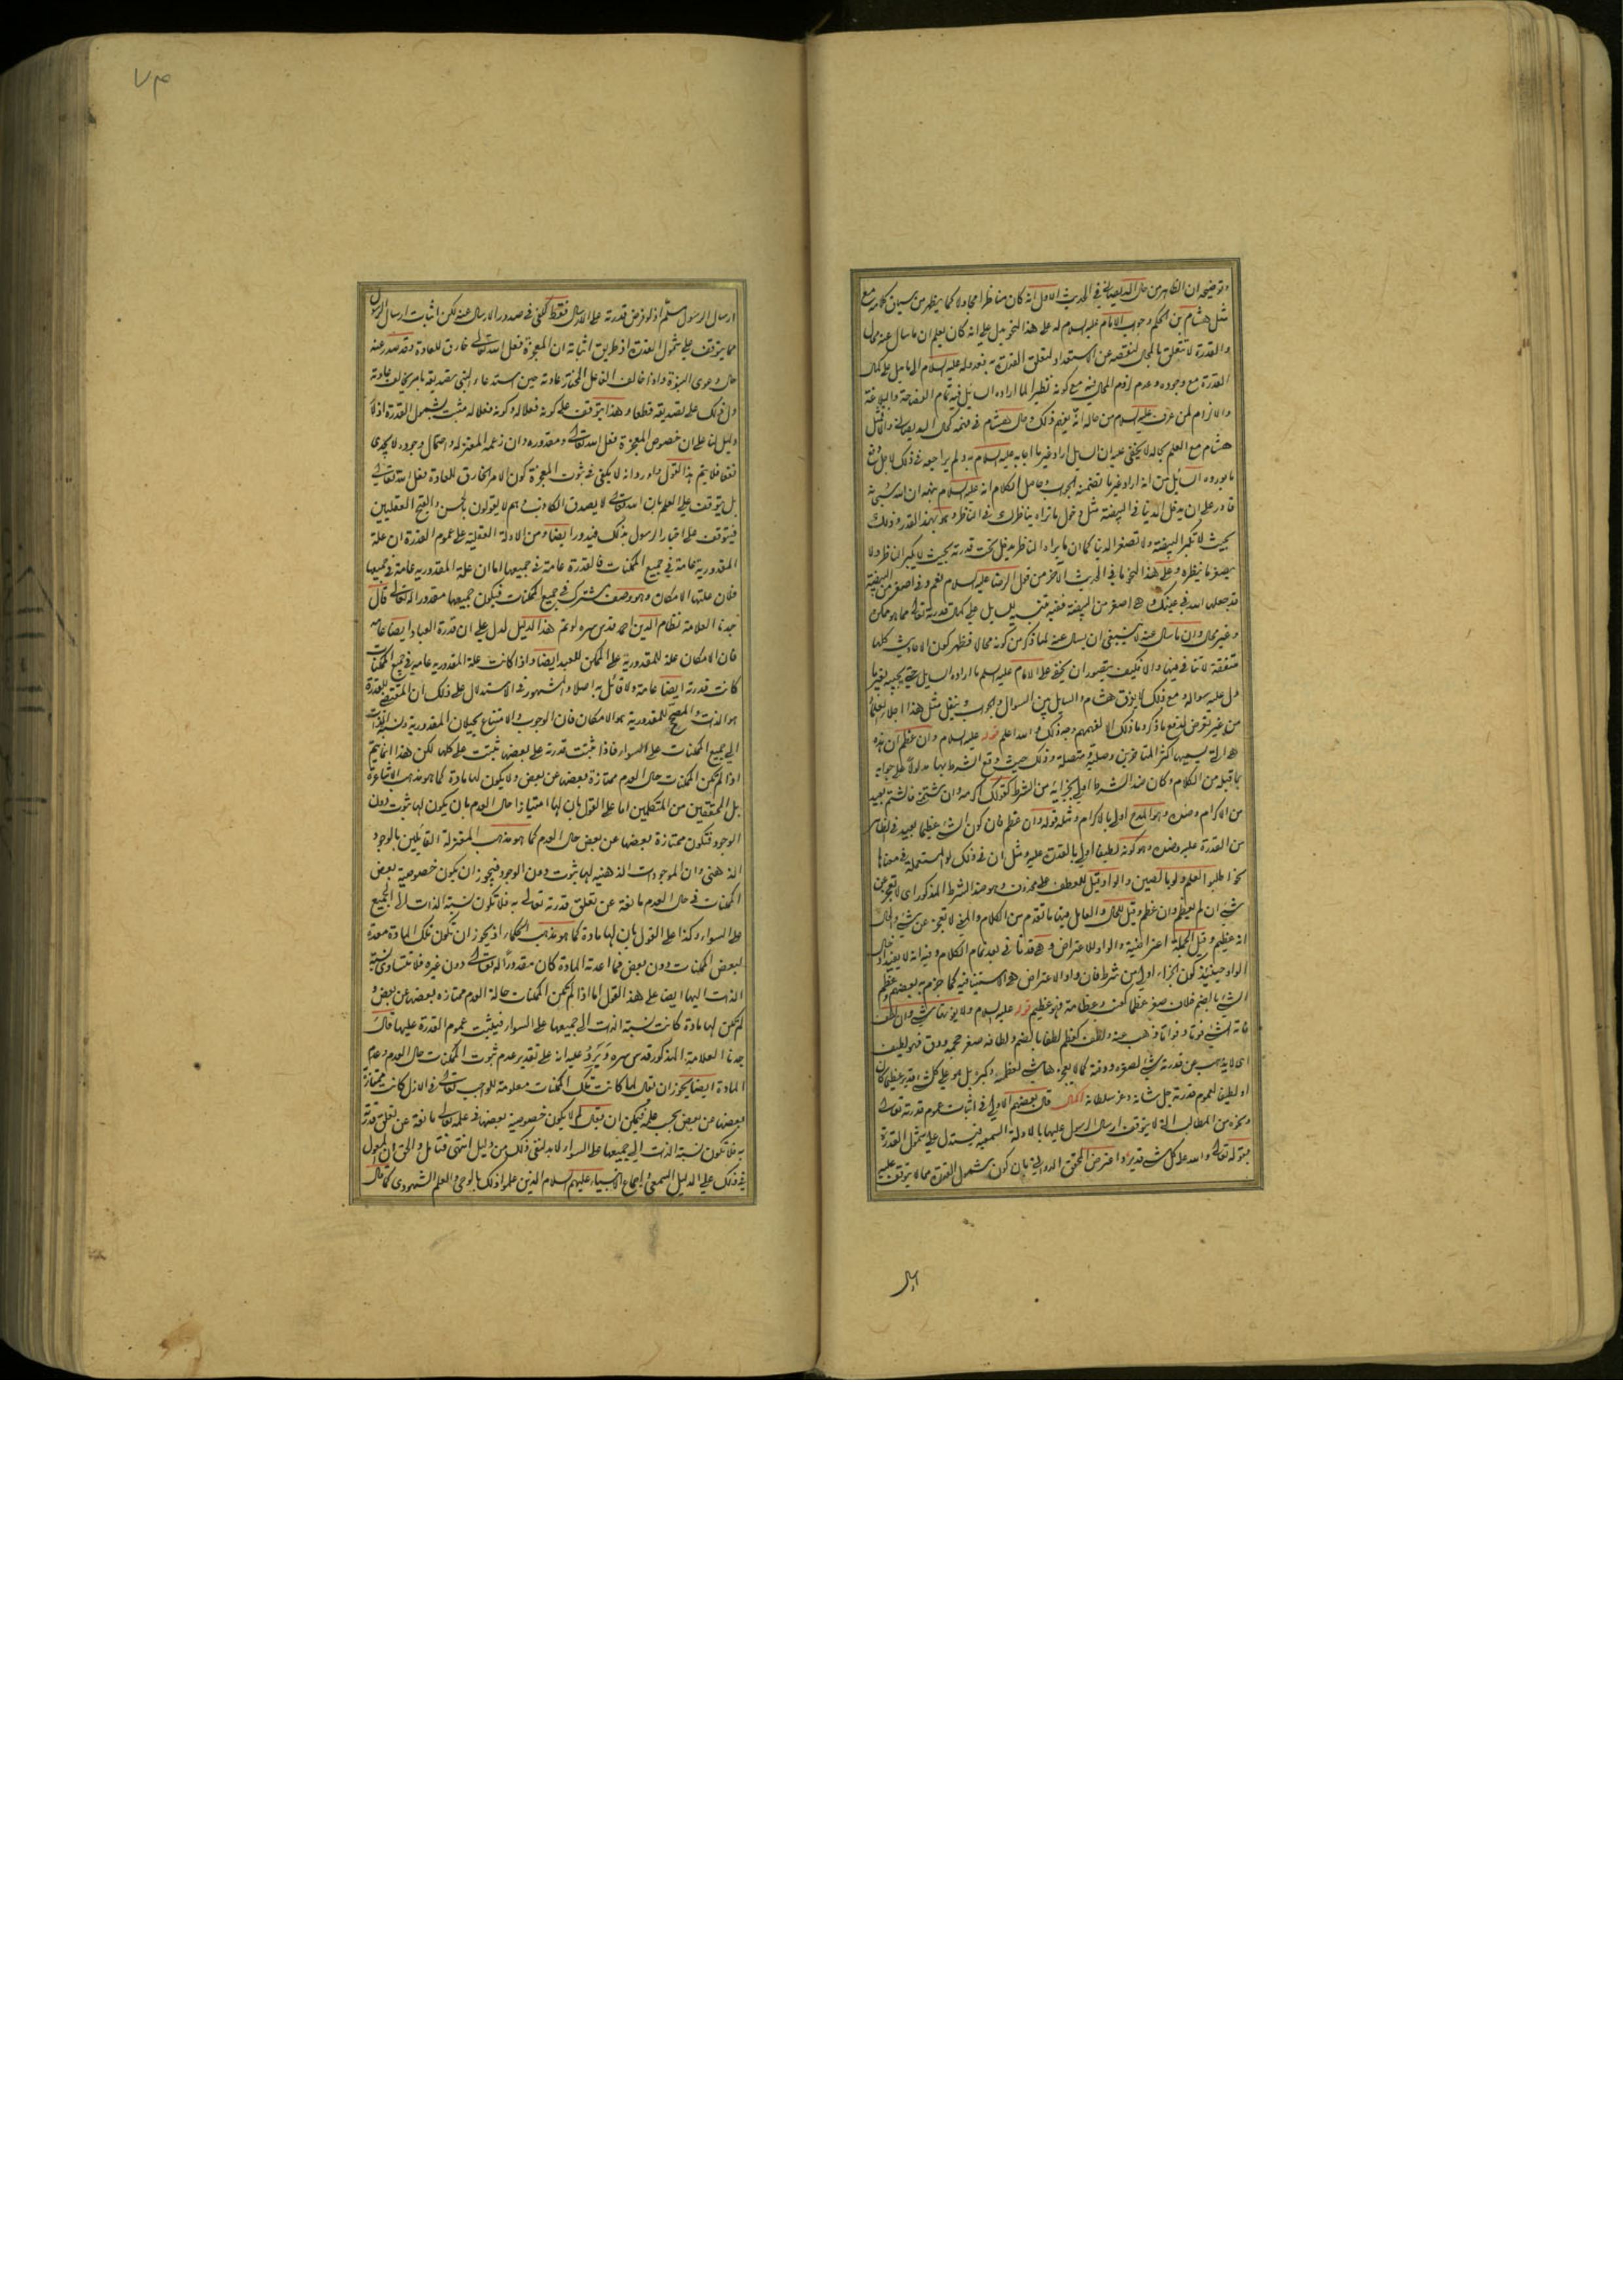 وتوضيحه ان الظاهر من حال الديصاني في الحديث الاول انه كان مناظرا مجادلا كما يظهر من سياق كلامه مع
مثل هشام بن الحكم وجواب الامام عليه السلام له على هذا النحو يدل على انه كان يعلم ان ما سال عنه محال
والقدرة لا تتعلق بالمحال لنقصه عن الاستعداد لتعلق القدرة به
القدرة مع وجوده وعدم لزوم المحال فيه مع كونه نظيرا لما اراده السائل فيه تمام الفصاحة والبلاغة
والالزام لمن عرف عليه السلام من حاله انه يفهم ذلك وحال هشام في فهمه كحال الديصاني والا فمثل
هشام مع العلم بحاله لا يخفى عليه ان السايل اراد غير ما اجابه عليه السلام به ولم يراجعه في ذلك
ما يورده السائل من انه اراد غير ما تضمنه الجواب وحاصل الكلام انه عليه السلام
قادر على ان يدخل الدنيا في البيضة مثل دخول ما تراه بناظرك في الناظر
بحيث لا تكبر البيضة ولا تصغر الدنيا كما ان ما يراه الناظر يدخل تحت قدرته بحيث لا يكبر الناظر ولا
يصغر ما ينظره وعلى هذا النحو ما في الحديث الآخر من قول الرضا عليه السلام نعم وفي اصغر من البيضة
قد جعلها الله في عينك وهي اصغر من البيضة ففيه تنبيه للسايل على كمال قدرته تعالى مما هو ممكن
وغير محال وان ما سال عنه لا ينبغي ان يسال عنه لما ذكر من كونه محالا فظهر كون الاحاديث كلها
متفقة لا تنافي فيها والا فكيف يتصور ان يخفى على الامام عليه السلم ما اراده السايل حتى يجيبه بغير ما
دل عليه سواله ومع ذلك لا يفرق هشام والسايل بين السوال والجواب وينقل مثل هذا اجلاء العلماء
من غير تعرض لدفع ما ذكر وما ذلك الا لفهمهم وجه ذلك والله اعلم قوله عليه السلام وان عظم ان هذه
هي التي يسميها اكثر المتاخرين وصلية ومتصلة وذلك حيث وقع الشرط بها مدلولا على جوابه
بما قبله من الكلام وكان ضد الشرط اولى بالجزاء من الشرط كقولك اكرمه وان شتمني فالشتم بعيد
من الاكرام وضده وهو المدح اولى بالاكرام ومثله قوله وان عظم فان كون الشئ عظيما بعيد في الظاهر
من القدرة عليه وضده وهو كونه لطيفا اولى بالقدرة عليه ومثل ان في ذلك لو المستعملة في معناها
نحو اطلبوا العلم ولو بالصين والواو قيل للعطف على محذوف وهو ضد الشرط المذكور اى لا يعجز عن
شئ ان لم يعظم وان عظم وقيل للحال والعامل فيها ما تقدم من الكلام والمعنى لا يعجز عن شئ والحال
انه عظيم وقيل الجملة اعتراضية والواو للاعتراض وهي قد تاتي بعد تمام الكلام وفيه انه لا يفيد ادخال
الواو حينئذ كون الجزاء اولى من شرط فان واو الاعتراض هي الاستينافية كما جزم به بعضهم وعظم
الشئ بالضم خلاف صغر عظما كعنب وعظامة فهو عظيم قوله عليه السلام ولا يفوته شئ وان لطف
فاته الشئ فوتا وفواتا ذهب عنه ولطف كعظم لطفا بالضم ولطافة صغر حجمه ودق فهو لطيف
اى لا يذهب عن قدرته شئ لصغره ودقته كما لا يعجزها شئ لعظمه وكبره بل هو على كل شئ قدير عظيما كان
او لطيفا لعموم قدرته جل شانه وعز سلطانه اكمال قال بعضهم الاولى في اثبات عموم قدرته تعالى
ونحوه من المطالب التي لا يتوقف ارسال الرسل عليها بالادلة السمعية فيستدل على شمول القدرة
بقوله تعالى والله على كل شئ قدير واعترض المحقق الدواني بان كون شمول القدرة مما لا يتوقف عليه
ارسال
٧٣
ارسال الرسول مسلم اذ لو فرض قدرته على الارسال فقط كفى في صدور الارسال عنه لكن اثبات ارسال الرسول
مما يتوقف على شمول القدرة اذ طريق اثباته ان المعجزة فعل الله تعالى خارق للعادة وقد صدر عنه
حال دعوى النبوة واذا خالف الفاعل المختار عادته حين استدعاء النبى تصديقه بامر يخالف عادته
دل ذلك على تصديقه قطعا وهذا يتوقف على كونه فعلا له وكونه فعلا له مثبت بشمول القدرة اذ لا
دليل لنا على ان خصوص المعجزة فعل الله تعالى ومقدوره وان زعمه المعتزلة واحتمال وجود لا يجدى
نفعا فلا يتم هذا القول واورد انه لا يكفى في ثبوت المعجزة كون الامر الخارق للعادة فعل الله تعالى
بل يتوقف على العلم بان الله تعالى لا يصدق الكاذب وهم لا يقولون بالحسن والقبح العقليين
فيتوقف على اخبار الرسول بذلك فيدور ايضا ومن الادلة العقلية على عموم القدرة ان علة
المقدورية عامة في جميع الممكنات فالقدرة عامة في جميعها اما ان علة المقدورية عامة في جميعها
فلان علتها الامكان وهو وصف مشترك في جميع الممكنات فيكون جميعها مقدورا له تعالى قال
جدنا العلامة نظام الدين احمد قدس سره لو تم هذا الدليل لدل على ان قدرة العباد ايضا عامة
فان الامكان علة للمقدورية على الممكن للعبد ايضا واذا كانت علة المقدورية عامة في جميع الممكنات
كانت قدرته ايضا عامة ولا قائل به اصلا والمشهور في الاستدلال على ذلك ان المقتضى للقدرة
هو الذات والمصحح للمقدورية هو الامكان فان الوجوب والامتناع يحيلان المقدورية ونسبة الذات
الى جميع الممكنات على السواء فاذا ثبتت قدرته على بعضها ثبتت على كلها لكن هذا انما يتم
اذا لم تكن الممكنات حال العدم ممتازة بعضها عن بعض ولا يكون لها مادة كما هو مذهب الاشاعرة
بل المحققين من المتكلمين اما على القول بان لها امتيازا حال العدم بان يكون لها ثبوت دون
الوجود فتكون ممتازة بعضها عن بعض حال العدم كما هو مذهب المعتزلة القائلين بالوجود
الذهنى وان الموجودات الذهنية لها ثبوت دون الوجود فيجوز ان يكون خصوصية بعض
الممكنات في حال العدم مانعة عن تعلق قدرته تعالى به فلا تكون نسبة الذات الى الجميع
على السواء وكذا على القول بان لها مادة كما هو مذهب الحكماء اذ يجوز ان تكون تلك المادة معدة
لبعض الممكنات دون بعض فما اعدته المادة كان مقدورا له تعالى دون غيره فلا تتساوى نسبة
الذات اليها ايضا على هذا القول اما اذا لم تكن الممكنات حالة العدم ممتازة بعضها عن بعض و
لم تكن لها مادة كانت نسبة الذات الى جميعها على السواء فيثبت عموم القدرة عليها قال
جدنا العلامة المذكور قدس سره ويرد عليه انه على تقدير عدم ثبوت الممكنات حال العدم وعدم
المادة ايضا يجوز ان يقال لما كانت تلك الممكنات معلومة للواجب تعالى في الازل كانت ممتازة
بعضها عن بعض بحسب علمه فيمكن ان يقال لم لا يكون خصوصية بعضها في علمه تعالى مانعة عن تعلق قدرته
به فلا تكون نسبة الذات الى جميعها على السواء لا بد لنفى ذلك من دليل انتهى فتامل والحق ان المعول
في ذلك على الدليل السمعى واجماع الانبياء عليهم السلام الذين علموا ذلك بالوحى والعلم الشهودى كما قال